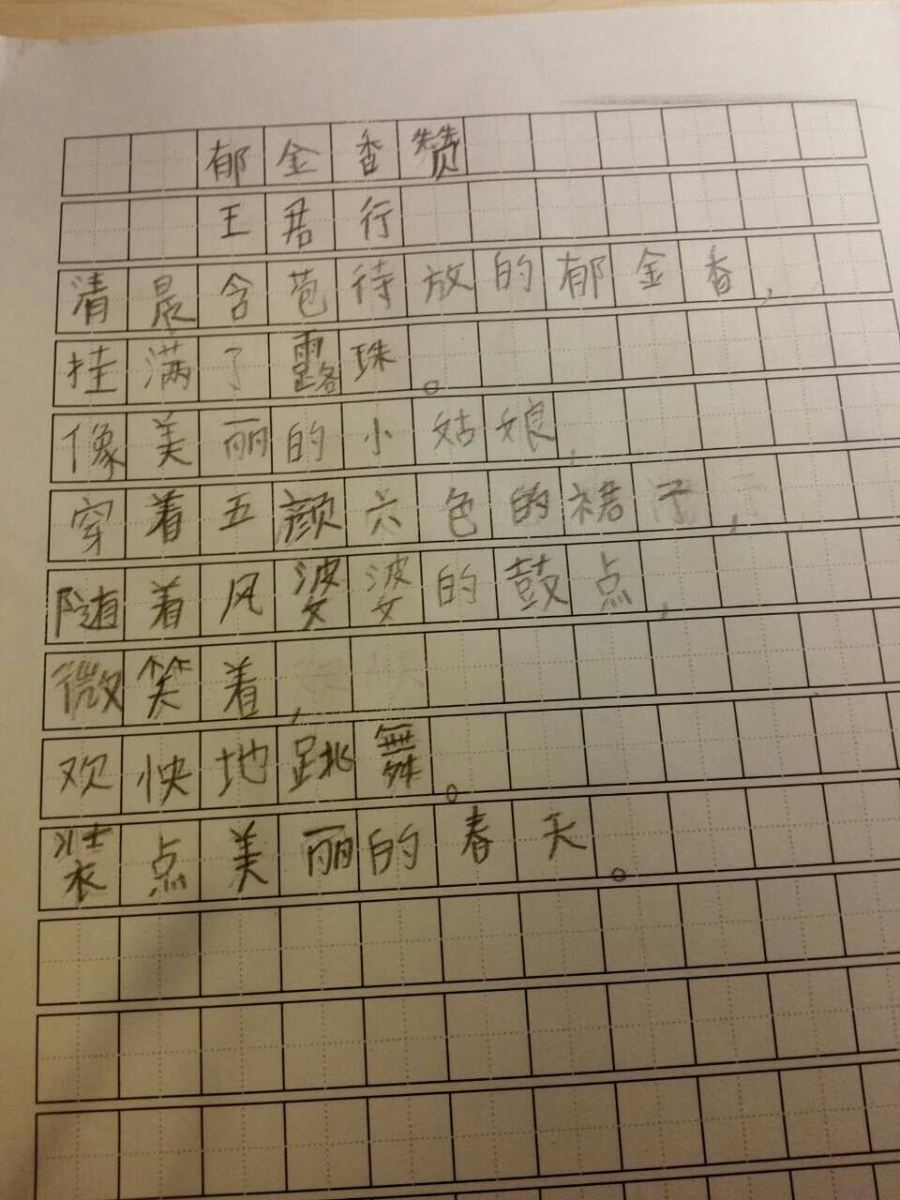 郁金香赞
王君行
清晨含苞待放的郁金香，
挂满了露珠。
像美丽的小姑娘，
穿着五颜六色的裙子，
随着风婆婆的鼓点，
微笑着，
欢快地跳舞。
装点美丽的春天。